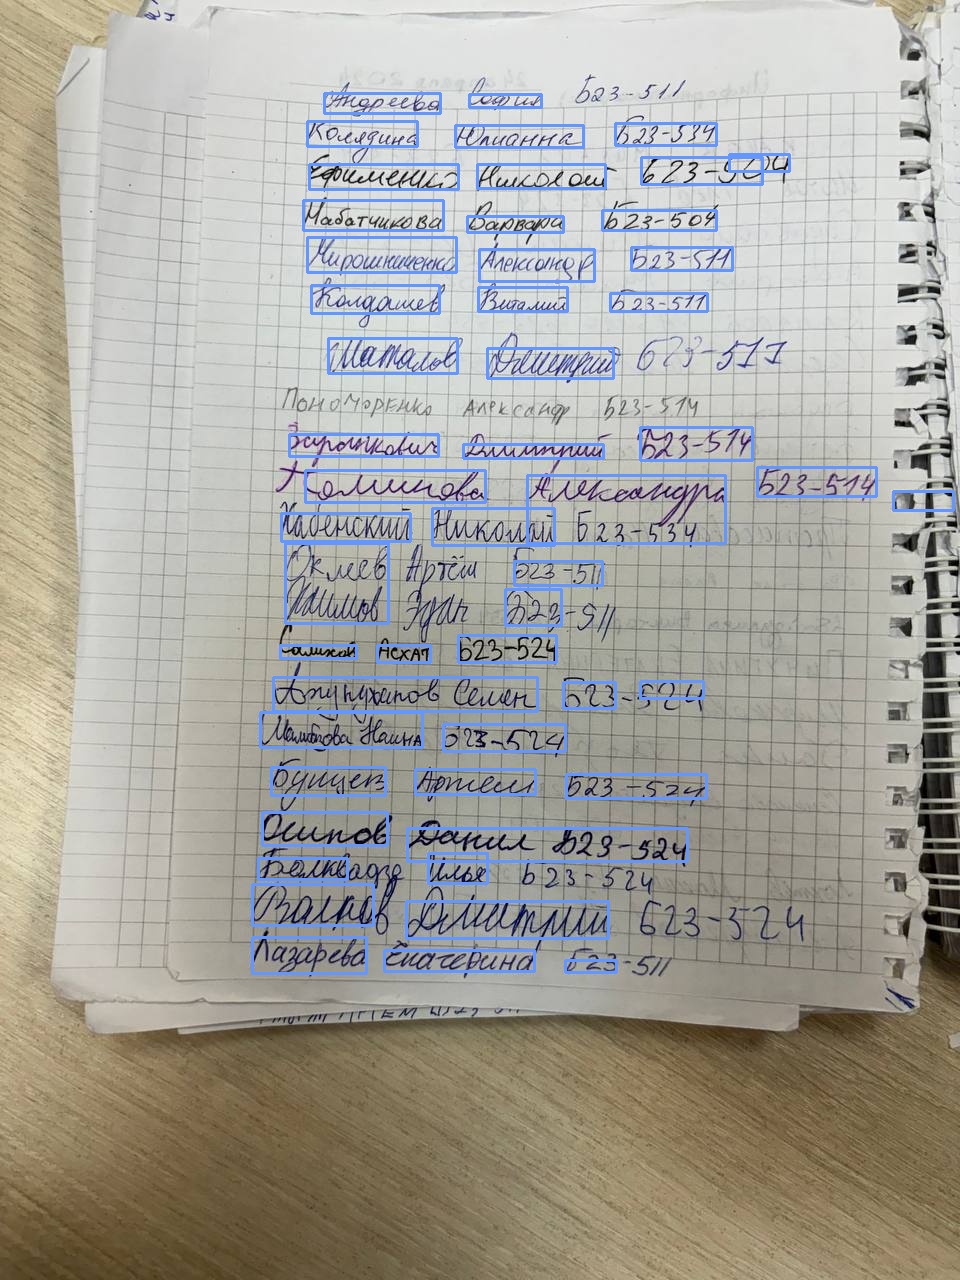 Андреева София Б23-511
Колядина Юлианна Б23-534
Ефименко Николай Б23-504
Набатчикова Варвара Б23-504
Мирошниченко Александр Б23-511
Колдашев Виталий Б23-511
Маталов Дмитрий Б23-511
Пономоренко Александр Б23-514
Дмитрий Б23-514
Александра Б23-514
Хабенский Николай Б23-534
Оклеев Артём Б23-511
Эдан Б23-511
Салихов Асхат Б23-524
Семен Б23-524
Наина Б23-524
Артем Б23-524
Осипов Данил Б23-524
Болквадзе Илья Б23-524
Волков Дмитрий Б23-524
Лазарева Екатерина Б23-511